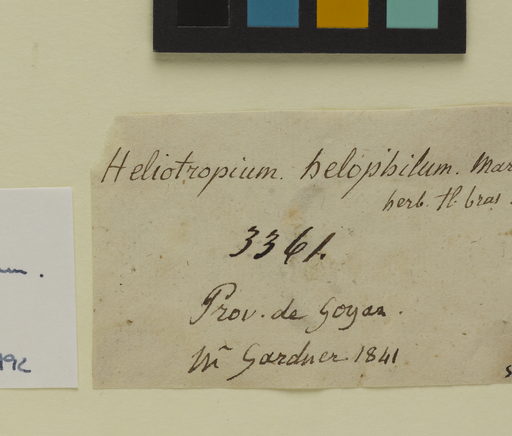 Heliotropium. helophilum. Mar
herb. fl. bras.
3361.
Prov. de Goyaz.
Mr Gardner 1841